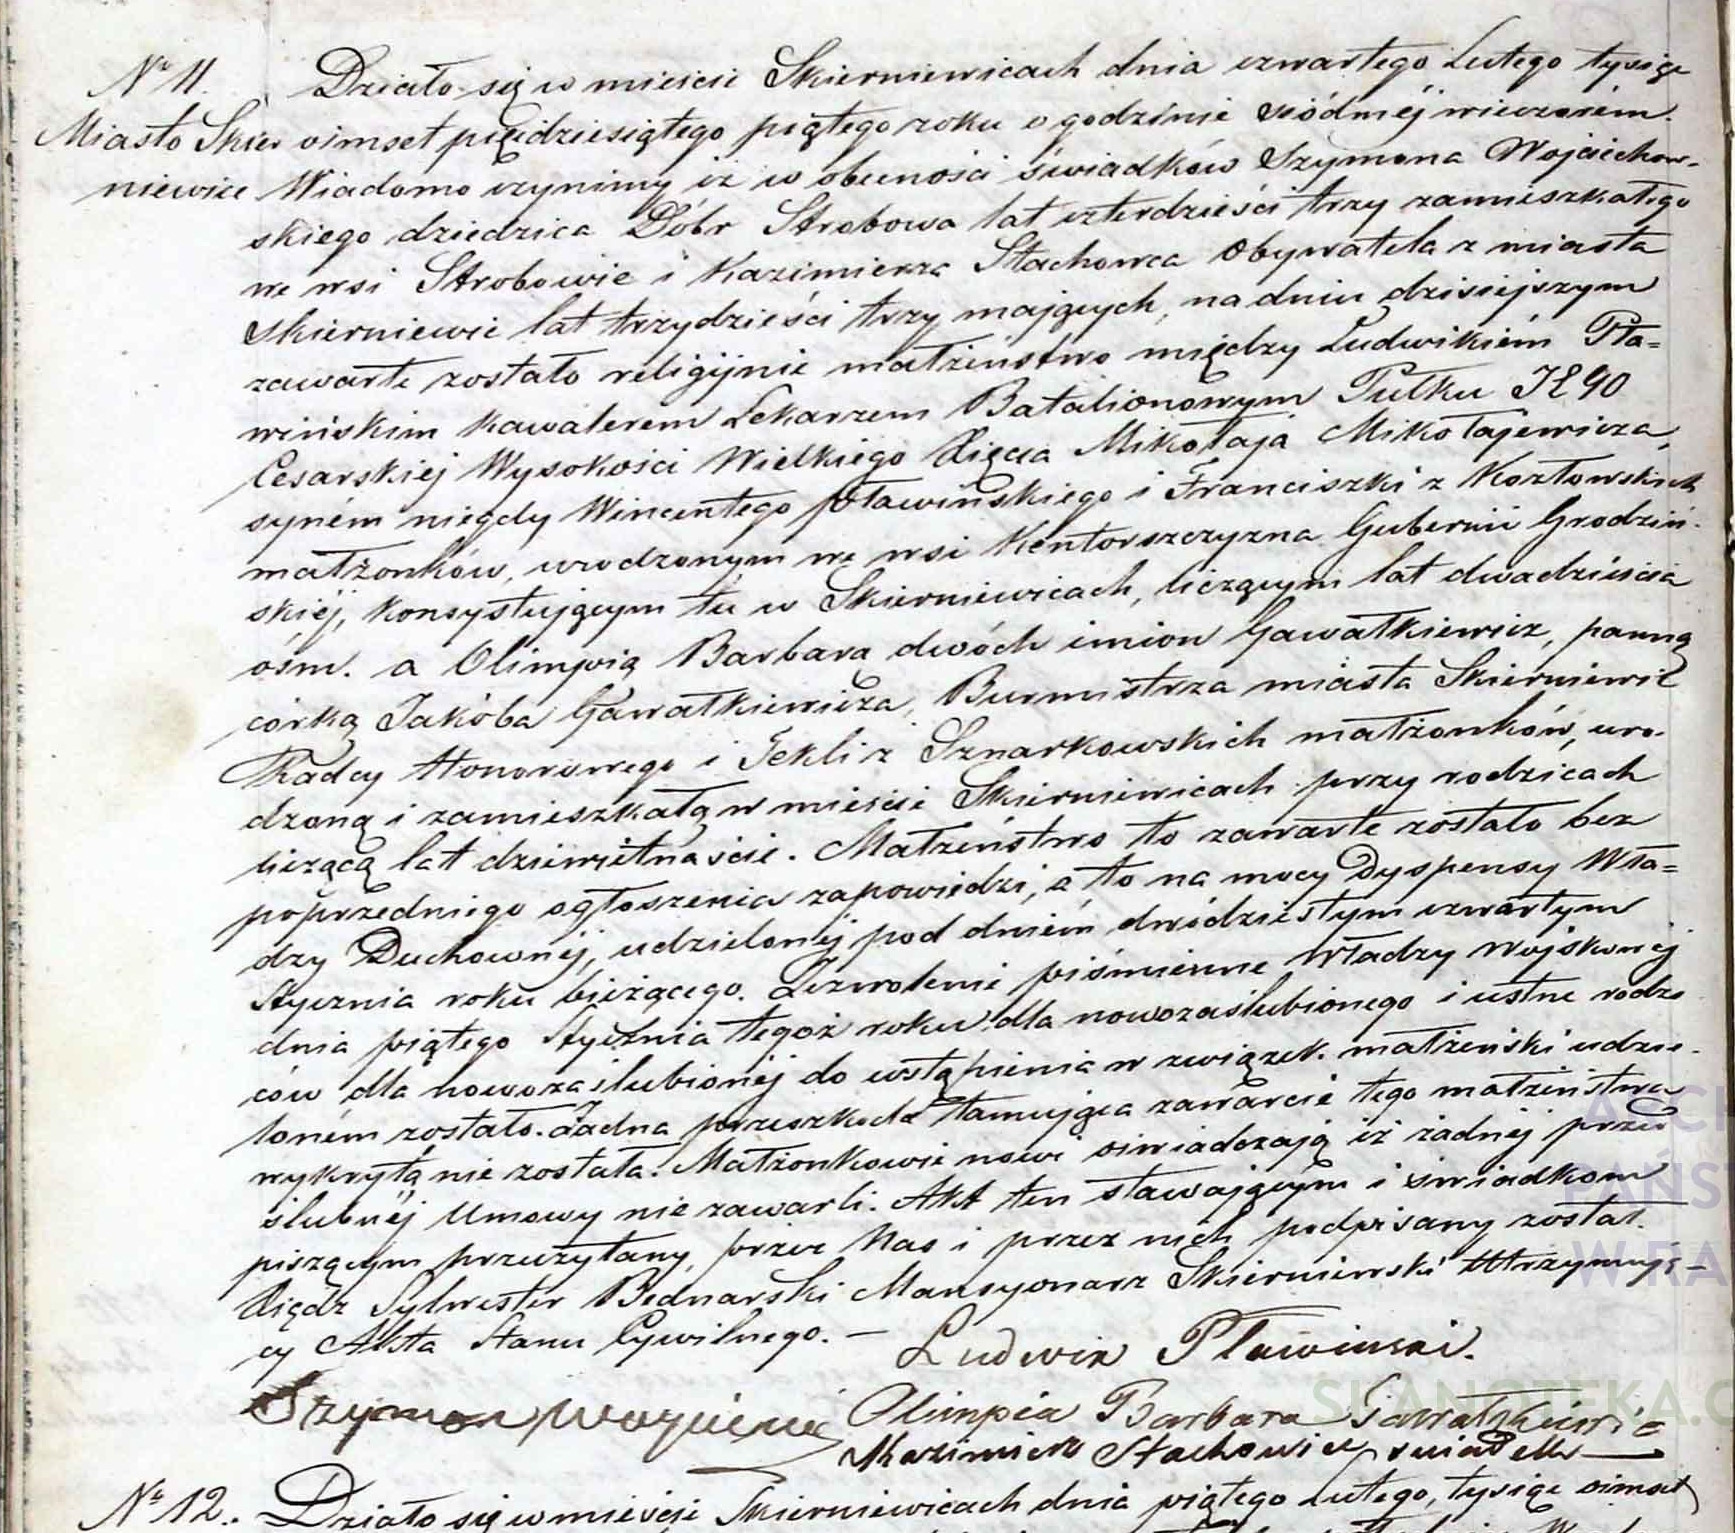 Nr 11. Działo się w mieście Skierniewicach dnia czwartego Lutego tysiąc
Miasto Skier ośmset pięćdziesiątego piątego roku o godzinie siódméj wieczorém.
niewice Wiadomo czynimy iż w obecności świadków Szymona Wojciechow-
skiego dziedzica Dóbr Strobowa lat czterdzieści trzy zamieszkałego
we wsi Strobowie i Kazimierza Stachowca Obywatela z miasta
Skierniewic lat trzydzieści trzy mających, na dniu dzisiejszym
zawarte zostało religijnie małżeństwo między Ludwikiém Pła=
wińskim kawalerem Lekarzem Batalionowym Pułku
Cesarskiej Wysokości Wielkiego Xięcia Mikołaja Mikołajewicza,
syném niegdy Wincentego Pławińskiego i Franciszki z Kozłowskich
małżonków, urodzonym we wsi Kentorszczyzna Gubernii Grodziń-
skiéj, konsystującym tu w Skierniewicach, liczącym lat dwadzieścia
ośm. a Olimpią Barbara dwóch imion Gawałkiewicz, panną
córką Jakóba Gawałkiewicza, Burmistrza miasta Skierniewic
Radcy Honorowego i Tekli z Sznarkowskich małżonków, uro-
dzoną i zamieszkałą w mieście Skierniewicach przy rodzicach
liczącą lat dziewiętnaście. Małżeństwo to zawarte zostało bez
poprzedniego ogłoszenia zapowiedzi, a to na mocy Dyspensy Wła=
dzy Duchownéj, udzielonéj pod dniém dwódziestym czwartym
Stycznia roku bieżącego. Zezwolenie piśmienne Władzy Wojskowéj
dnia piątego Stycznia tegoż roku dla nowozaślubionego i ustne rodzi
ców dla nowozaślubionéj do wstąpienia w związek małżeński udzie-
loném zostało. Żadna przeszkoda tamująca zawarcie tego małżeństwa
wykrytą nie została. Małżonkowie nowi oświadczają iż żadnéj przed
ślubnéj Umowy nie zawarli. Akt ten stawającym i świadkom
piszącym przeczytany, przez Nas i przez nich podpisany został.
Xiądz Sylwester Bednarski Mansyonarz Skierniewski Utrzymują-
cy Akta Stanu Cywilnego. —
Ludwik Pławinski.
Szymon
Olimpia Barbara Gawałkiewic
Kazimierz Stachowicz swiadek
Nr 12. Działo się w mieście Skierniewicach dnia piątego Lutego, tysiąc ośmset